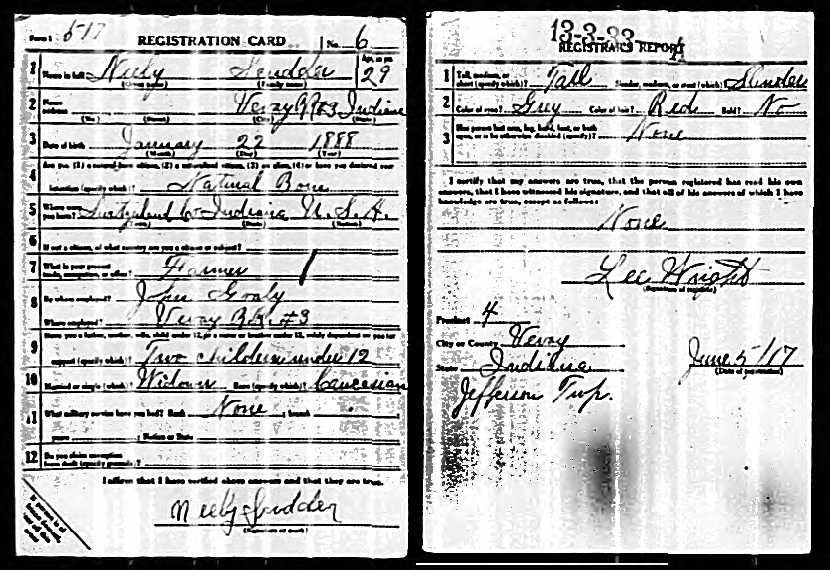 Form 1 5-17 REGISTRATION CARD No. 6
1 Name in full Neely Scudder Age, in yrs. 29
(Given name) (Family name)
2 Home address Vevay RR#3 Indiana
(No.) (Street) (City) (State)
3 Date of birth January 22 1888
(Month) (Day) (Year)
4 Are you (1) a natural-born citizen, (2) a naturalized citizen, (3) an alien, (4) or have you declared your
intention (specify which)? Natural Born
5 Where were you born? Switzerland Co Indiana U.S.A.
(Town) (State) (Nation)
6 If not a citizen, of what country are you a citizen or subject?
7 What is your present trade, occupation, or office? Farmer
8 By whom employed? John
Where employed? Vevay R.R.#3
9 Have you a father, mother, wife, child under 12, or a sister or brother under 12, solely dependent on you for
support (specify which)? Two children under 12
10 Married or single (which)? Widower Race (specify which)? Caucasian
11 What military service have you had? Rank None ; branch
years ; Nation or State
12 Do you claim exemption from draft (specify grounds)?
I affirm that I have verified above answers and that they are true.
Neely Scudder
(Signature or mark)
13-3-23 A
REGISTRAR'S REPORT
1 Tall, medium, or short (specify which)? Tall Slender, medium, or stout (which)? Slender
2 Color of eyes? Grey Color of hair? Red Bald? No
3 Has person lost arm, leg, hand, foot, or both eyes, or is he otherwise disabled (specify)? None
I certify that my answers are true, that the person registered has read his own
answers, that I have witnessed his signature, and that all of his answers of which I have
knowledge are true, except as follows:
None
Lee Wright
(Signature of registrar)
Precinct 4
City or County Vevay
State Indiana June 5/17
(Date of registration)
Jefferson Twp.